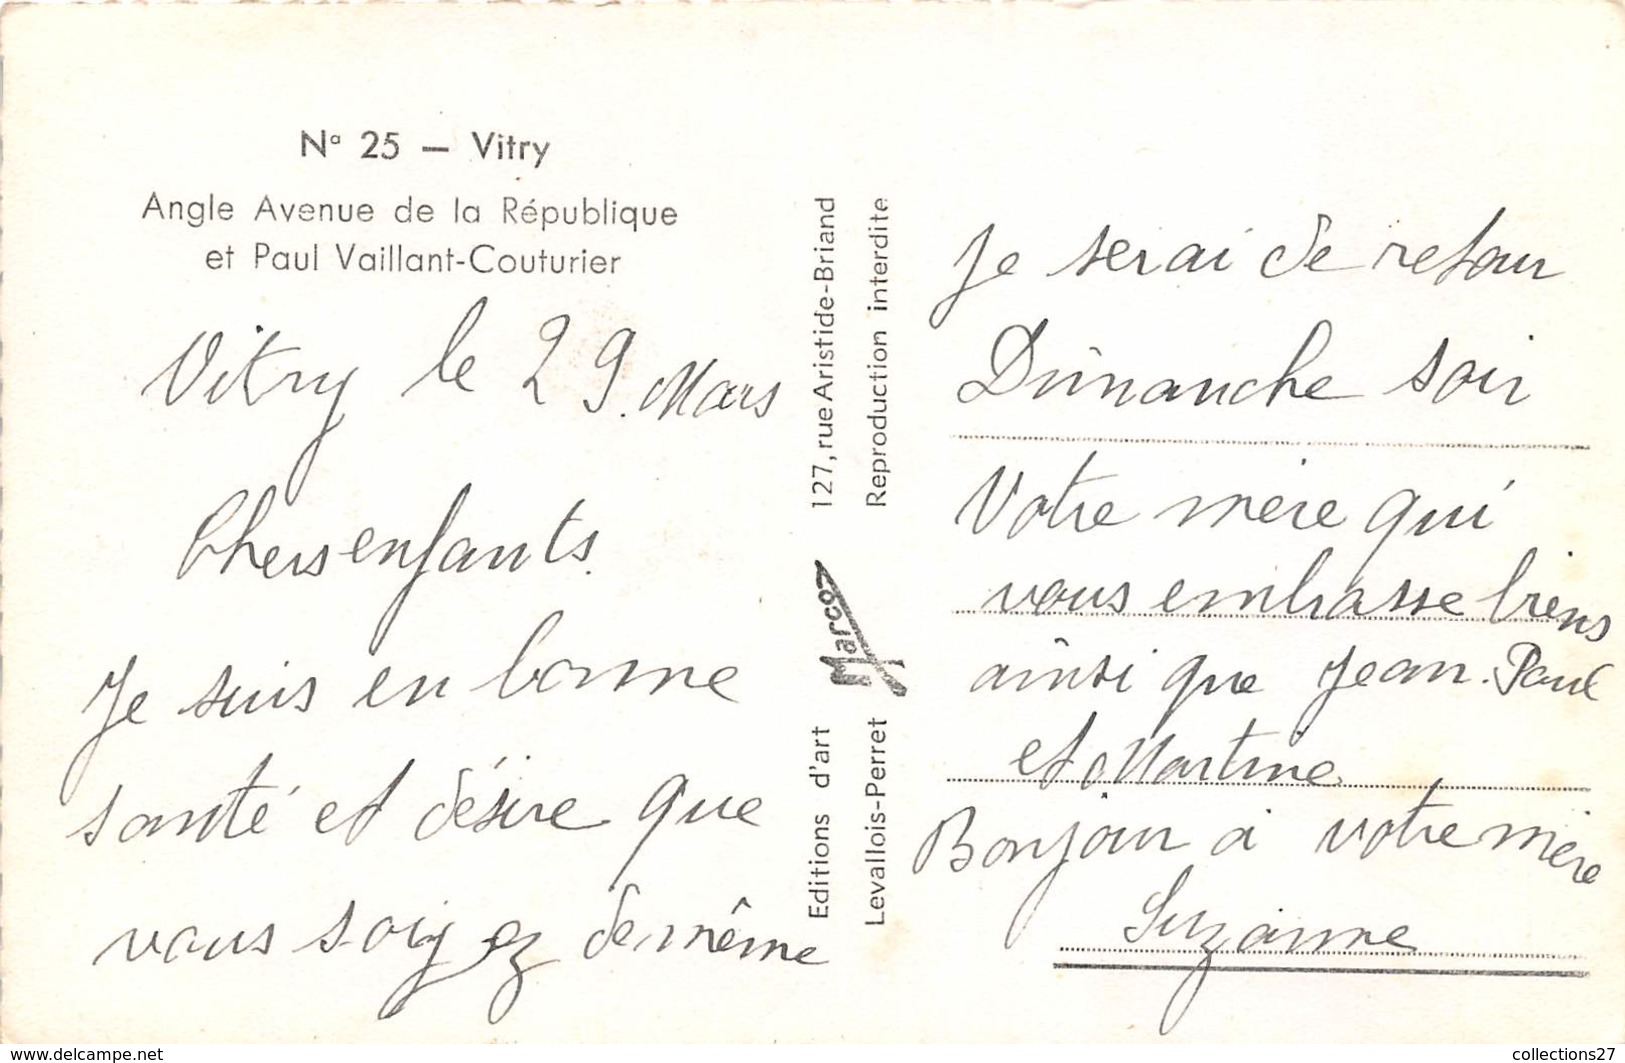 Nº 25 — Vitry
Angle Avenue de la République
et Paul Vaillant-Couturier
Vitry le 29. Mars
Chers enfants.
Je suis en bonne
santé et désire que
vous soigez de même
127, rue Aristide-Briand
Reproduction interdite
Marco
Editions d'art
Levallois-Perret
Je serai de retour
Dimanche soir
Votre mère qui
vous embrasse biens
ainsi que Jean. Paul
et Martine
Bonjour à votre mère
Suzanne
www.delcampe.net
collections27